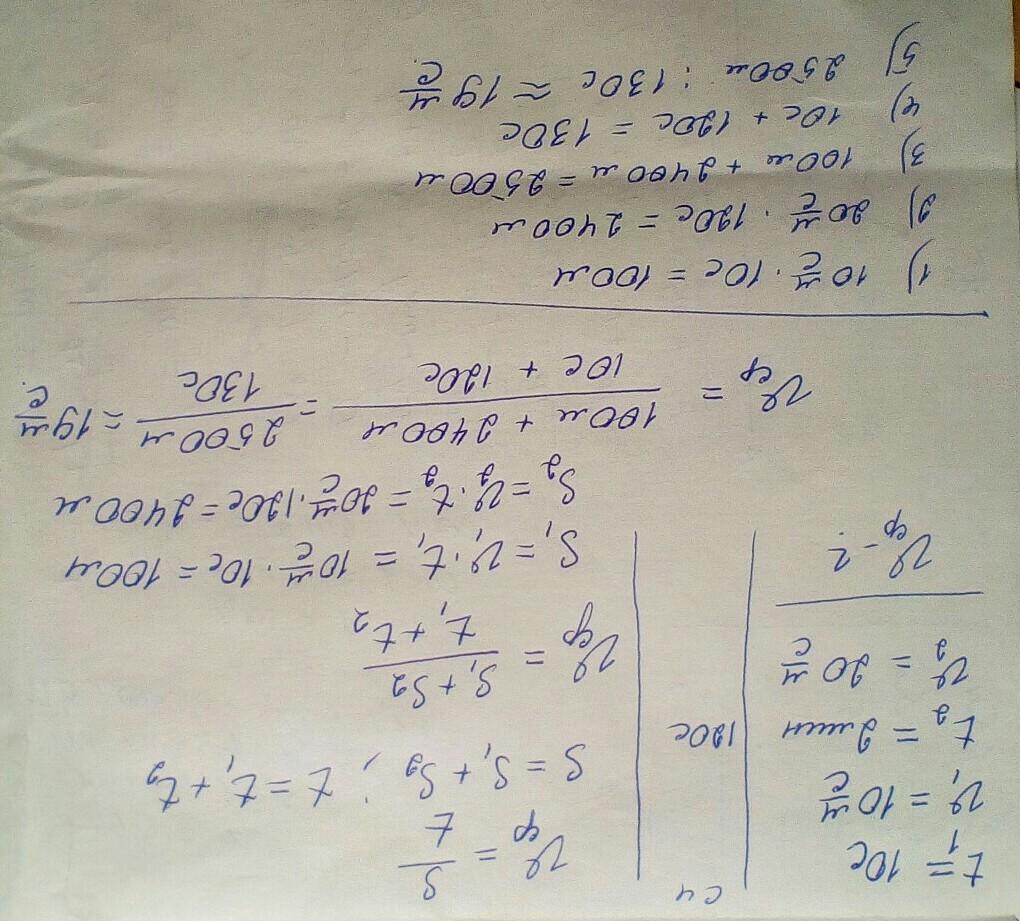 СИ
t₁ = 10с
v₁ = 10 м/с
t₂ = 2мин
120с
v₂ = 20 м/с
vср - ?
vср = S/t
S = S₁ + S₂ ; t = t₁ + t₂
vср = (S₁ + S₂)/(t₁ + t₂)
S₁ = v₁ · t₁ = 10 м/с · 10с = 100м
S₂ = v₂ · t₂ = 20 м/с · 120с = 2400м
vср = (100м + 2400м)/(10с + 120с) = 2500м/130с ≈ 19 м/с.
1) 10 м/с · 10с = 100м
2) 20 м/с · 120с = 2400м
3) 100м + 2400м = 2500м
4) 10с + 120с = 130с
5) 2500м : 130с ≈ 19 м/с.